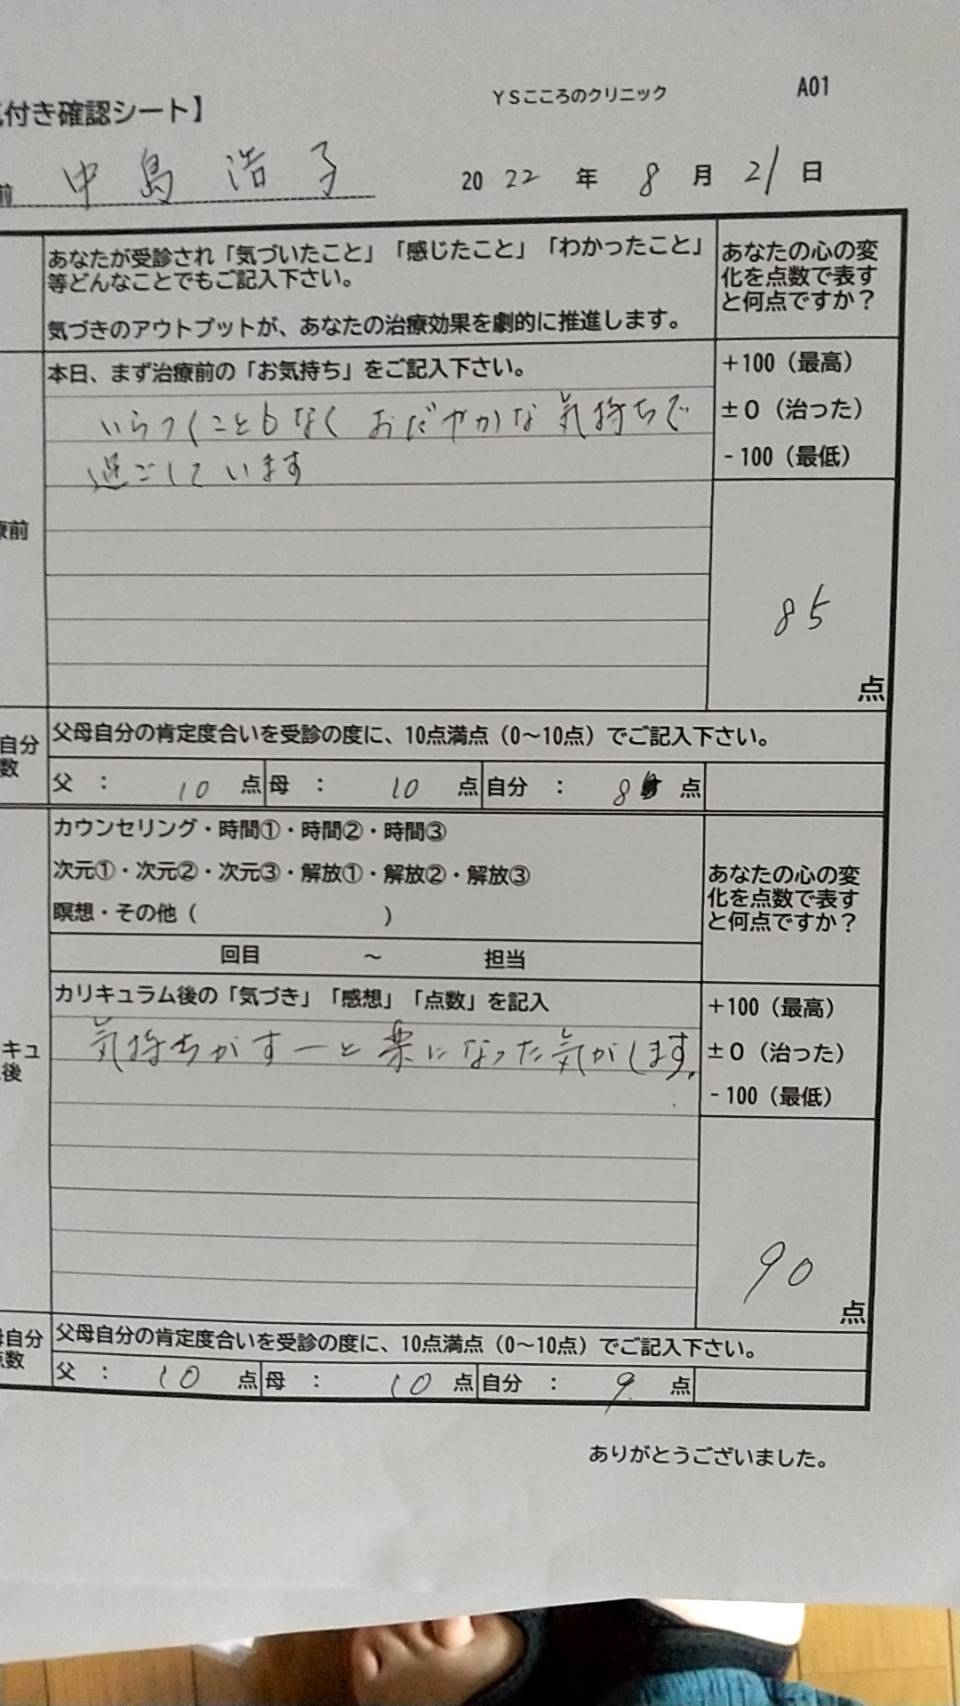 気付き確認シート】
YSこころのクリニック
A01
前 中島 浩子
2022年 8月 21日
あなたが受診され「気づいたこと」「感じたこと」「わかったこと」
等どんなことでもご記入下さい。
気づきのアウトプットが、あなたの治療効果を劇的に推進します。
あなたの心の変
化を点数で表す
と何点ですか？
本日、まず治療前の「お気持ち」をご記入下さい。
+100（最高）
±0（治った）
-100（最低）
いらつくこともなく おだやかな気持ちで
過ごしています
療前
85
点
自分
数
父母自分の肯定度合いを受診の度に、10点満点（0～10点）でご記入下さい。
父 ： 10 点 母 ： 10 点 自分 ： 8 点
カウンセリング・時間①・時間②・時間③
次元①・次元②・次元③・解放①・解放②・解放③
瞑想・その他（ ）
回目 ～ 担当
あなたの心の変
化を点数で表す
と何点ですか？
カリキュラム後の「気づき」「感想」「点数」を記入
+100（最高）
±0（治った）
-100（最低）
気持ちがすーと楽になった気がします。
キュ
後
90
点
母自分
点数
父母自分の肯定度合いを受診の度に、10点満点（0～10点）でご記入下さい。
父 ： 10 点 母 ： 10 点 自分 ： 9 点
ありがとうございました。